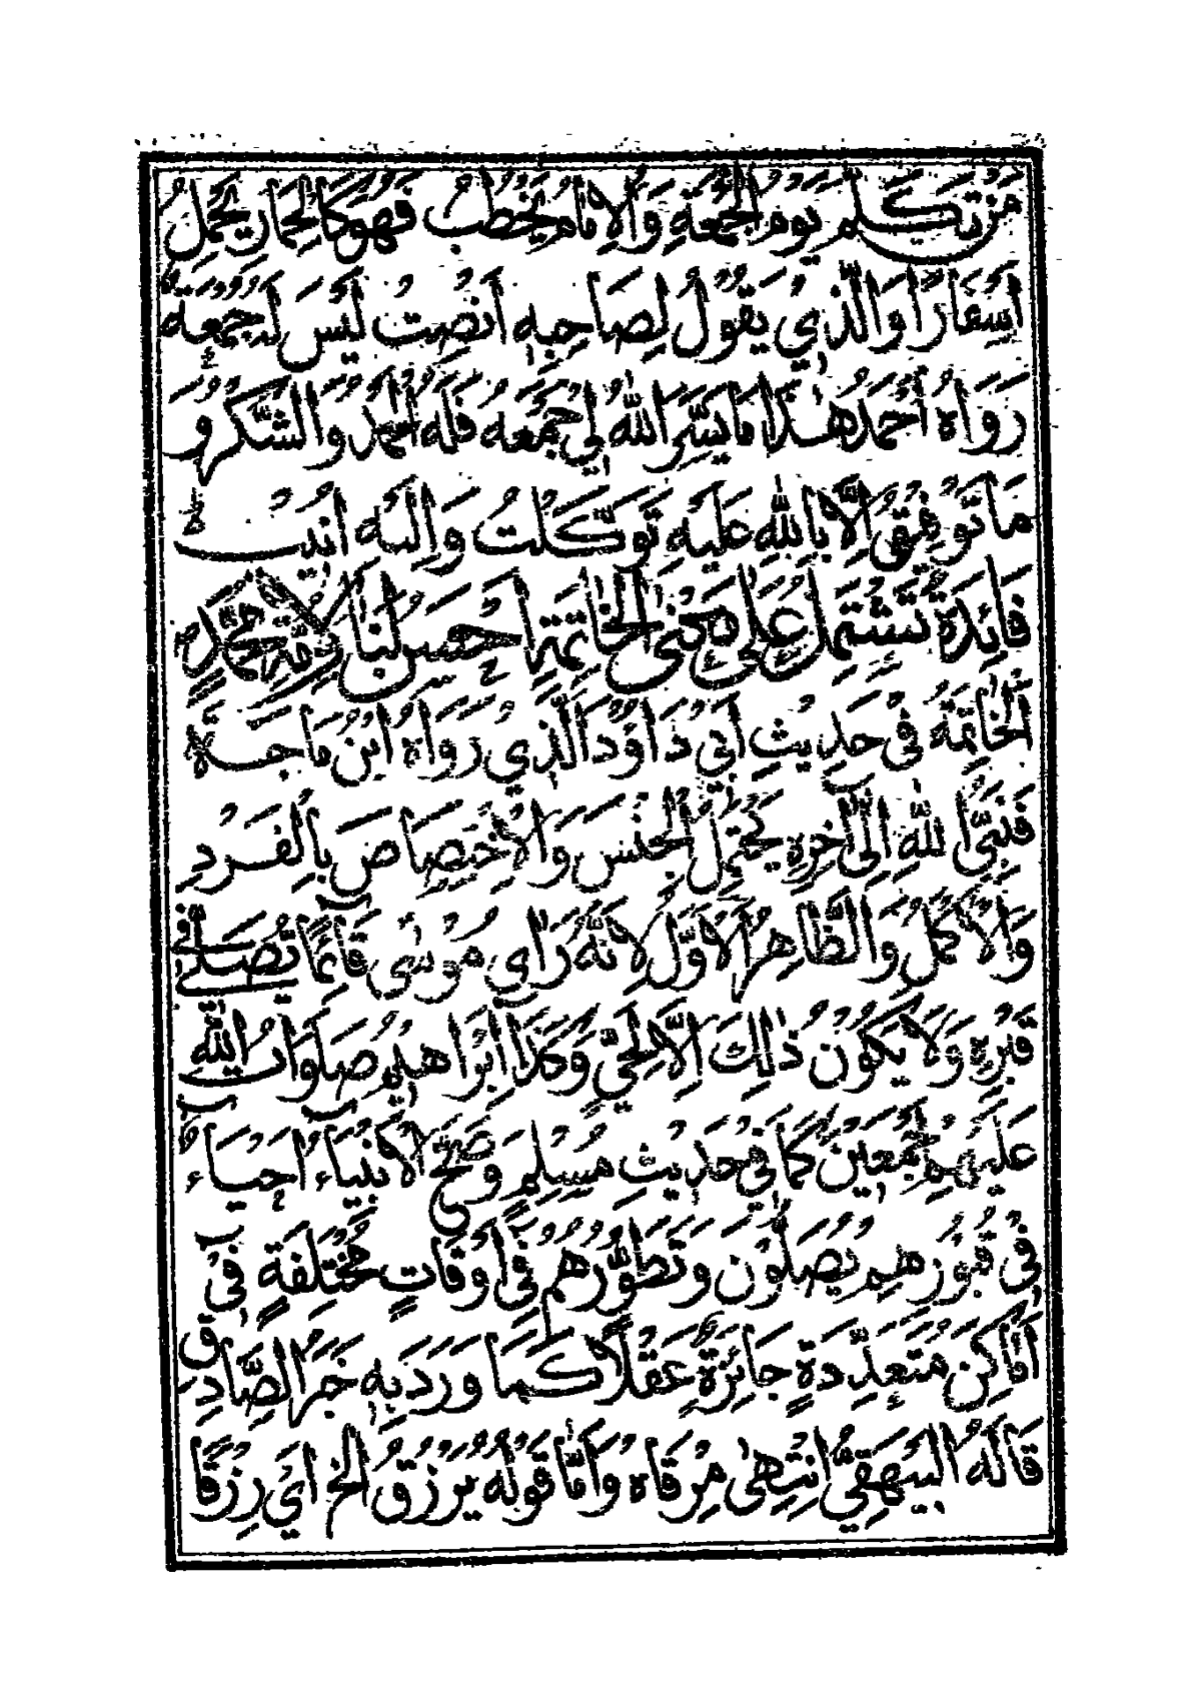 مَنْ تَكَلَّمَ يَوْمَ الْجُمُعَةِ وَالْإِمَامُ يَخْطُبُ فَهُوَ كَالْحِمَارِ يَحْمِلُ
أَسْفَارًا وَالَّذِي يَقُولُ لِصَاحِبِهِ أَنْصِتْ لَيْسَ لَهُ جُمُعَةٌ
رَوَاهُ أَحْمَدُ هٰذَا مَا يَسَّرَ اللهُ لِي جَمْعَهُ فَلَهُ الْحَمْدُ وَالشُّكْرُ وَ
مَا تَوْفِيْقِي إِلَّا بِاللهِ عَلَيْهِ تَوَكَّلْتُ وَإِلَيْهِ أُنِيْبُ
فَائِدَةٌ تَشْتَمِلُ عَلَى مَعْنَى الْخَاتِمَةِ أَحْسَنَ لَنَا
الْخَاتِمَةُ فِيْ حَدِيْثِ أَبِيْ دَاوُدَ الَّذِي رَوَاهُ ابْنُ مَاجَه
فَنَبِيُّ اللهِ إِلَى آخِرِهِ يَحْتَمِلُ الْجِنْسَ وَالْاِخْتِصَاصَ بِالْفَرْدِ
وَالْأَكْمَلُ وَالظَّاهِرُ الْأَوَّلُ لِأَنَّهُ رَاٰى مُوسٰى قَآئِمًا يُصَلِّي فِي
قَبْرِهِ وَلَا يَكُوْنُ ذٰلِكَ إِلَّا لِحَيٍّ وَكَذَا إِبْرَاهِيْمُ صَلَوَاتُ اللهِ
عَلَيْهِمْ أَجْمَعِيْنَ كَمَا فِيْ حَدِيْثِ مُسْلِمٍ وَصَحَّ الْأَنْبِيَآءُ أَحْيَآءٌ
فِيْ قُبُوْرِهِمْ يُصَلُّوْنَ وَتَطَوُّرُهُمْ فِيْ أَوْقَاتٍ مُخْتَلِفَةٍ فِيْ
أَمَاكِنَ مُتَعَدِّدَةٍ جَائِزَةٌ عَقْلًا كَمَا وَرَدَ بِهِ خَبَرُ الصَّادِقِ
قَالَهُ الْبَيْهَقِيُّ اِنْتَهٰى مِرْقَاة وَأَمَّا قَوْلُهُ يُرْزَقُ الخ أَيْ رِزْقًا